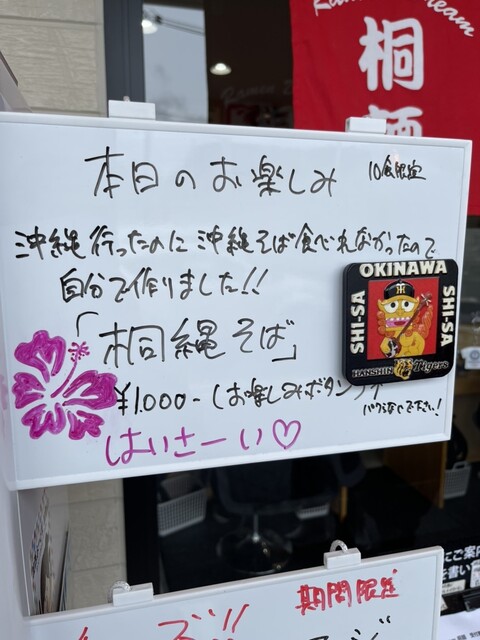 Ramen Dream
桐麺
本日のお楽しみ 10食限定
沖縄行ったのに沖縄そば食べれなかったので
自分で作りました!!
「桐縄そば」
¥1.000-(お楽しみボタン
パクらないで下さい!
はいさーい♡
OKINAWA
SHI-SA
SHI-SA
HANSHIN Tigers
期間限定